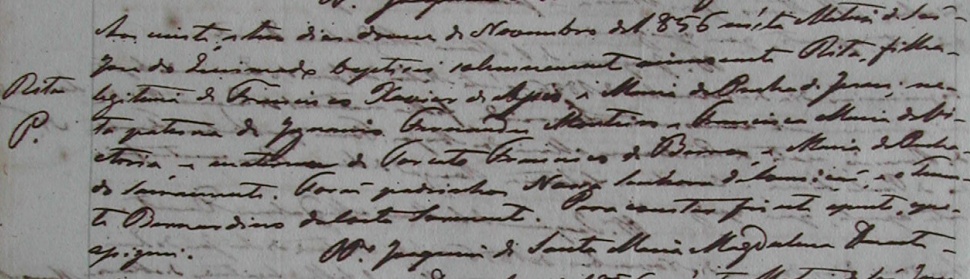 Aos vinte, e tres dias do mez de Novembro de 1856 n'ésta Matriz de São
José do Queimado baptisei solemnemente innocente Rita, filha
Rita legitima de Francisco Xavier de e Maria da Penha de Jesus; ne-
P. ta paterna de Ignacio Fernandes Monteiro e Francisca Maria da Vi-
ctoria e materna de Torcato Francisco de Barros, e Maria da Penha
do Sacramento. Forão padrinhos Nossa Senhora da Conceição, e o Tenen-
te Bernardino Sarmento. Para constar fis este assento, que
assignei. Joaquim de Santa Maria Magdalena Duarte